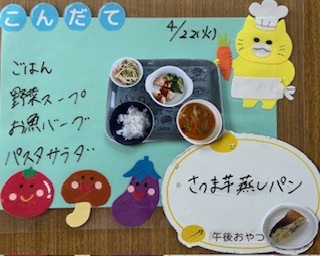 こんだて
4/22(火)
ごはん
野菜スープ
お魚バーグ
パスタサラダ
さつま芋蒸しパン
午後おやつ